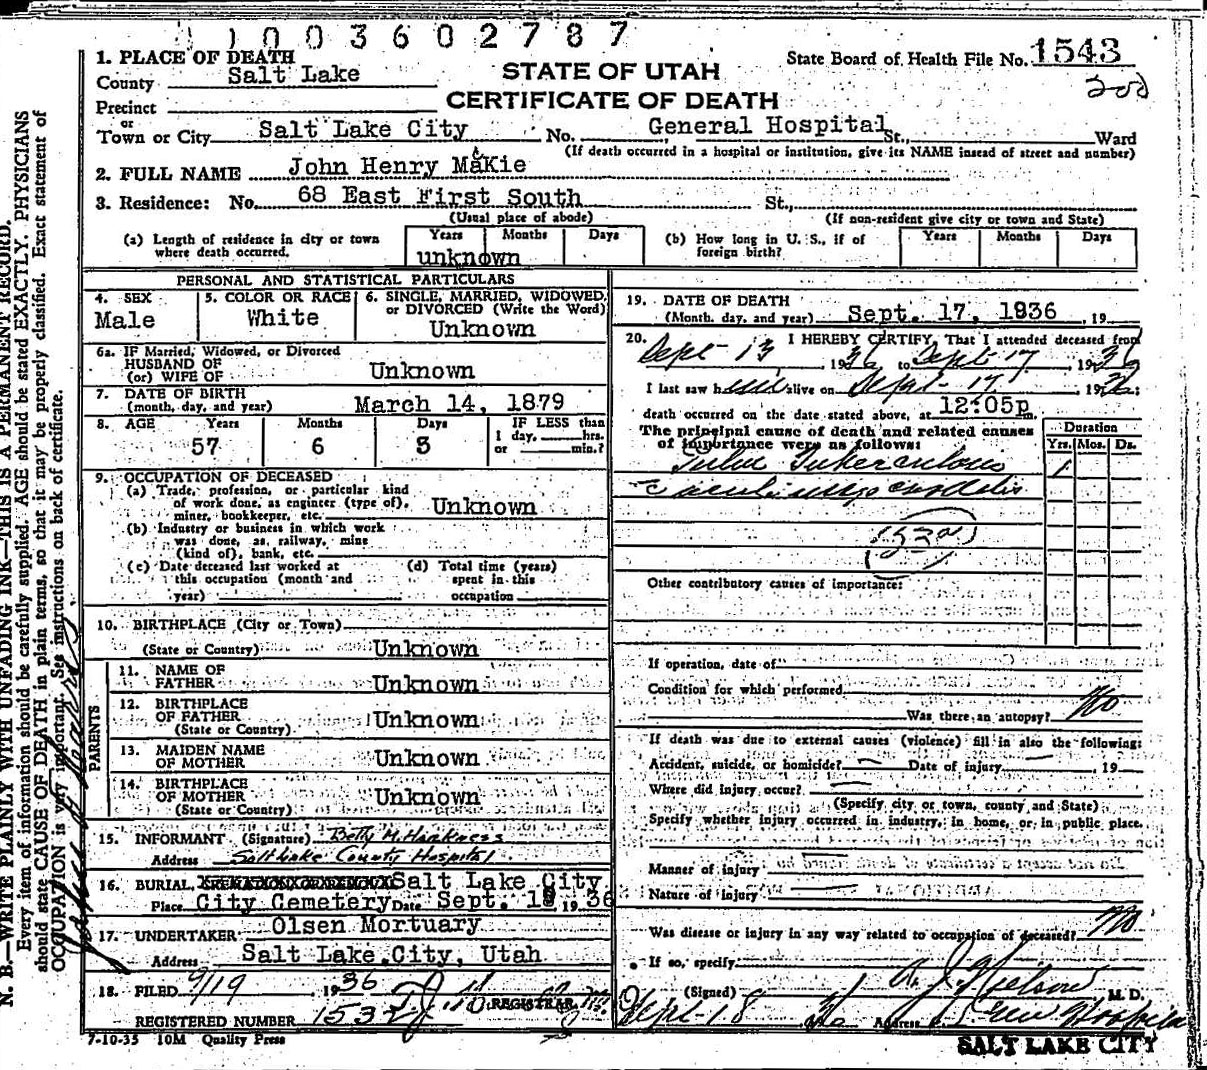 1003602787
1. PLACE OF DEATH
County Salt Lake
STATE OF UTAH
State Board of Health File No. 1543
CERTIFICATE OF DEATH
200
Precinct
or
Town or City Salt Lake City No. General Hospital St., Ward
(If death occurred in a hospital or institution, give its NAME instead of street and number)
2. FULL NAME John Henry McKie
3. Residence: No. 68 East First South St.,
(Usual place of abode) (If non-resident give city or town and State)
(a) Length of residence in city or town where death occurred. Years Months Days
unknown
(b) How long in U. S., if of foreign birth? Years Months Days
PERSONAL AND STATISTICAL PARTICULARS
4. SEX Male
5. COLOR OR RACE White
6. SINGLE, MARRIED, WIDOWED, or DIVORCED (Write the Word) Unknown
6a. IF Married, Widowed, or Divorced
HUSBAND OF
(or) WIFE OF Unknown
7. DATE OF BIRTH
(month, day, and year) March 14, 1879
8. AGE Years Months Days IF LESS than
57 6 3 1 day, hrs.
or min.?
9. OCCUPATION OF DECEASED
(a) Trade, profession, or particular kind
of work done, as engineer (type of),
miner, bookkeeper, etc. Unknown
(b) Industry or business in which work
was done, as, railway, mine
(kind of), bank, etc.
(c) Date deceased last worked at
this occupation (month and
year)
(d) Total time (years)
spent in this
occupation
10. BIRTHPLACE (City or Town)
(State or Country) Unknown
PARENTS
11. NAME OF
FATHER Unknown
12. BIRTHPLACE
OF FATHER Unknown
(State or Country)
13. MAIDEN NAME
OF MOTHER Unknown
14. BIRTHPLACE
OF MOTHER Unknown
(State or Country)
15. INFORMANT (Signature) Betty M. Harkness
Address Salt Lake County Hospital
16. BURIAL, Salt Lake City
Place City Cemetery Date Sept. 18 1936
17. UNDERTAKER Olsen Mortuary
Address Salt Lake City, Utah
18. FILED 9/19 1936
REGISTRAR
REGISTERED NUMBER 1532
7-10-35 10M Quality Press
19. DATE OF DEATH
(Month, day, and year) Sept. 17, 1936 , 19
20. I HEREBY CERTIFY, That I attended deceased from
Sept-13 1936 to Sept-17 1936
I last saw him alive on Sept-17 1936;
death occurred on the date stated above, at 12:05p m.
The principal cause of death and related causes
of importance were as follows:
Duration
Yrs. Mos. Ds.
Tuberculosis 1
Other contributory causes of importance:
If operation, date of
Condition for which performed
Was there an autopsy? No
If death was due to external causes (violence) fill in also the following:
Accident, suicide, or homicide? Date of injury , 19
Where did injury occur?
(Specify city or town, county and State)
Specify whether injury occurred in industry, in home, or in public place.
Manner of injury
Nature of injury
Was disease or injury in any way related to occupation of deceased? No
If so, specify
(Signed) A. J. Nielson M. D.
Sept-18 36 Address Gen Hospital
SALT LAKE CITY
N. B.—WRITE PLAINLY WITH UNFADING INK—THIS IS A PERMANENT RECORD.
Every item of information should be carefully supplied. AGE should be stated EXACTLY. PHYSICIANS
should state CAUSE OF DEATH in plain terms, so that it may be properly classified. Exact statement of
OCCUPATION is very important. See instructions on back of certificate.